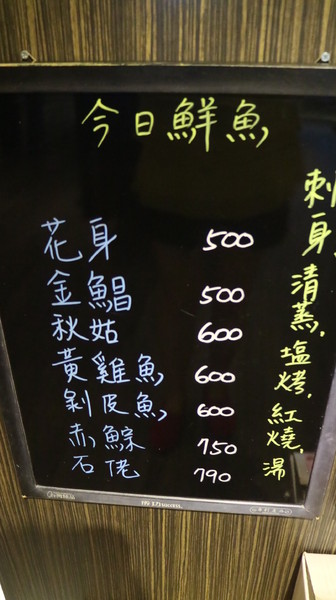 今日鮮魚
花身 500
金鯧 500
秋姑 600
黃雞魚 600
剝皮魚 600
赤鯮 750
石佬 790
刺身,清蒸,塩烤,紅燒,湯